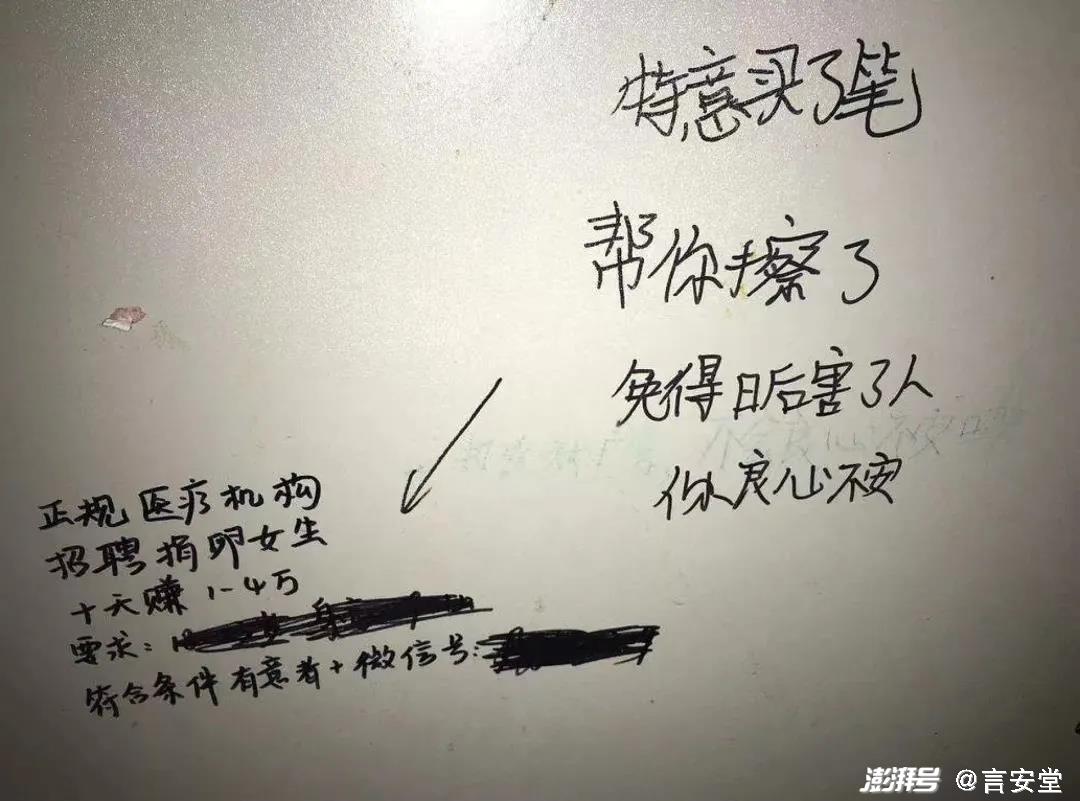 特意买了笔
帮你擦了
免得日后害了人
你良心不安
正规医疗机构
招聘捐卵女生
十天赚1-4万
要求:
符合条件有意者+微信号:
澎湃号 @言安堂